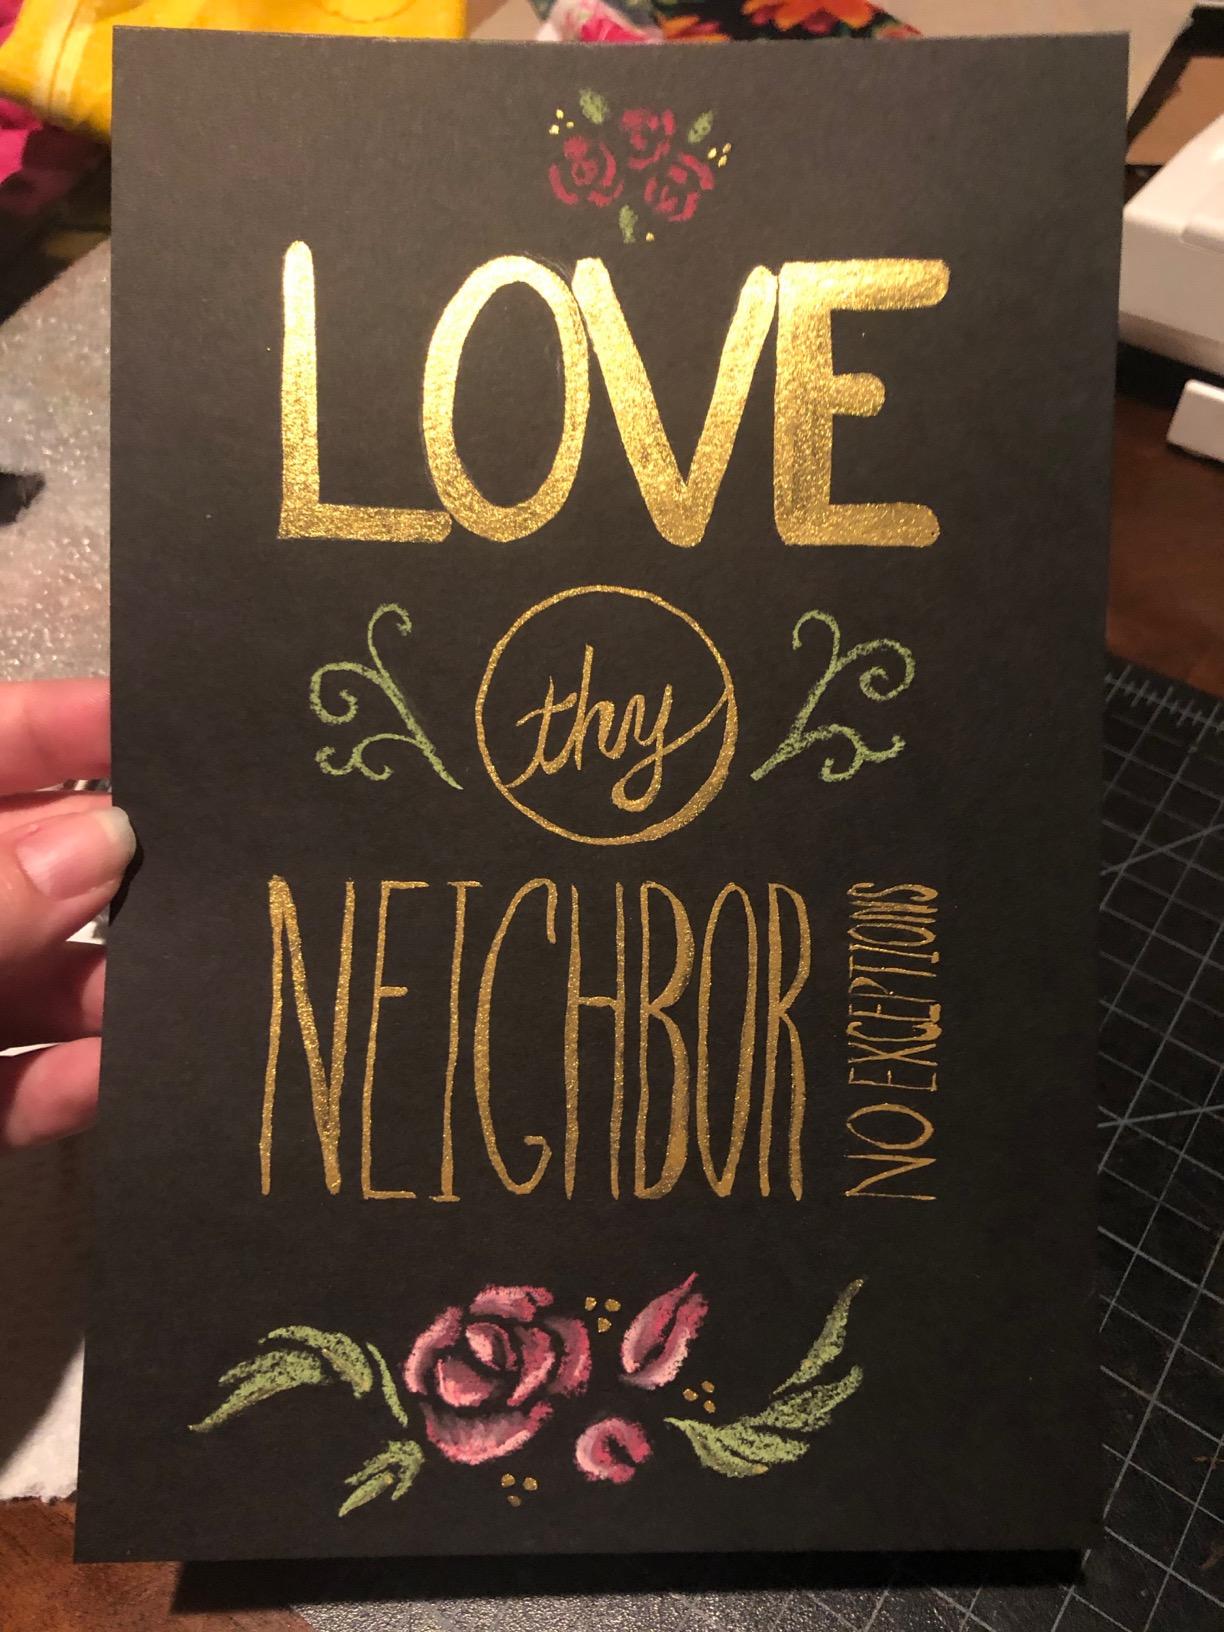 LOVE
thy
NEIGHBOR
NO EXCEPTIONS